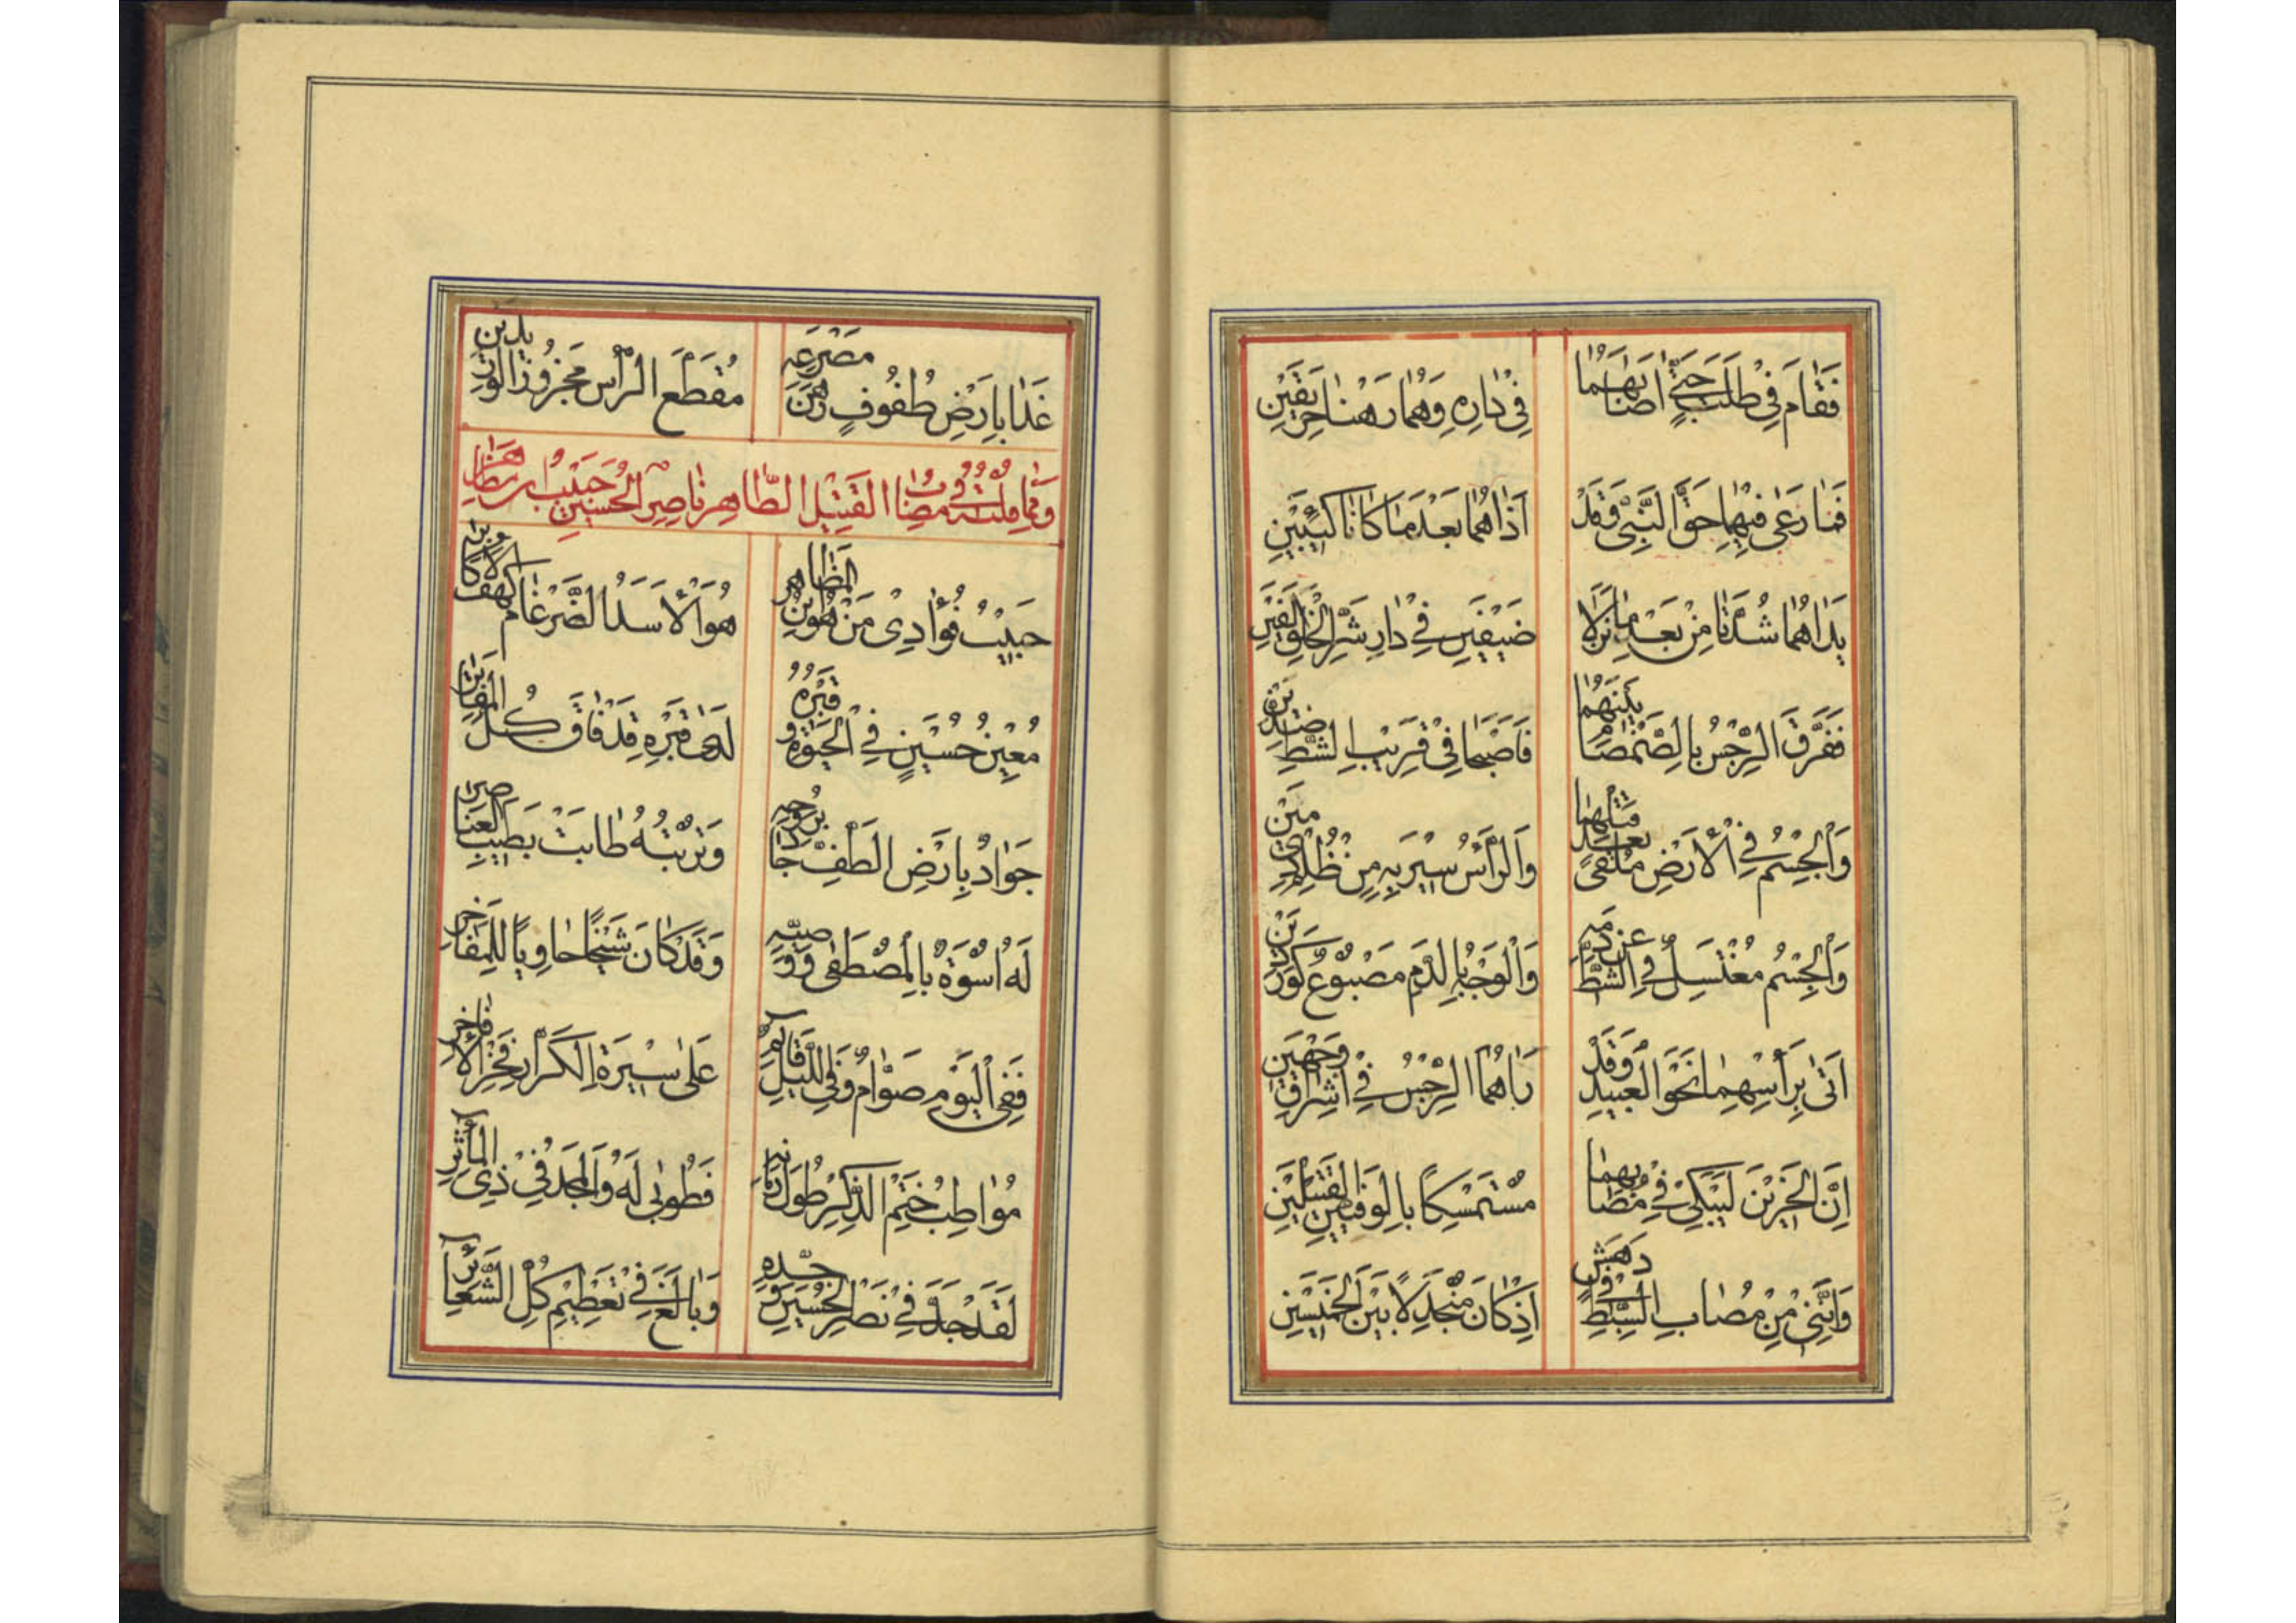 فَقَامَ فِي طَلَبٍ حَتّٰى اَصَابَهُمَا فِي دَارِهِ وَهُمَا رَهْنَا حَرِيقَيْنِ
فَمَا رَعٰى فِيهِمَا حَقَّ النَّبِيِّ وَقَدْ اَذَاهُمَا بَعْدَ مَا كَانَا كَئِيبَيْنِ
يَدَاهُمَا شُدَّتَا مِنْ بَعْدِ مَا نَزَلَا ضَيْفَيْنِ فِي دَارِ شَرِّ الْخَلْقِ
فَفَرَّقَ الرِّجْسُ بِالصَّمْصَامِ بَيْنَهُمَا فَاَصْبَحَا فِي قَرِيبِ الشَّطِّ
وَالْجِسْمُ فِي الْاَرْضِ مُلْقًى بَعْدَ قَتْلِهِمَا وَالرَّأْسُ سِيرَ بِهِ مِنْ ظُلْمِ
وَالْجِسْمُ مُغْتَسِلٌ فِي الشَّطِّ عَنْ دَمِهِ وَالْوَجْهُ بِالدَّمِ مَصْبُوغٌ
اَتٰى بِرَأْسِهِمَا نَحْوَ الْعَبِيدِ وَقَدْ رَاٰهُمَا الرِّجْسُ فِي اِشْرَاقِ وَجْهَيْنِ
اِنَّ الْحَزِينَ لَيَبْكِي فِي مُصَابِهِمَا مُسْتَمْسِكًا بِالْوَفِيَّيْنِ الْقَتِيلَيْنِ
وَاِنَّنِي مِنْ مُصَابِ السِّبْطِ فِي دَهَشٍ اِذْ كَانَ مُنْجَدِلًا بَيْنَ الْخَمِيسَيْنِ
غَدَا بِاَرْضِ طُفُوفٍ رَهْنَ مَصْرَعِهِ مُقَطَّعَ الرَّأْسِ مَجْزُوزَ الْوَرِيدَيْنِ
وَمِمَّا قُلْتُهُ فِي مُصَابِ الْقَتِيلِ الطَّاهِرِ نَاصِرِ الْحُسَيْنِ حَبِيبُ ابْنِ مَظَاهِرٍ
حَبِيبُ فُؤَادِي مَنْ هُوَ ابْنُ الْمَظَاهِرِ هُوَ الْاَسَدُ الضَّرْغَامُ كَهْفُ الْاَكَابِرِ
مُعِينُ حُسَيْنٍ فِي الْحَيٰوةِ وَقَبْرُهُ لَدٰى قَبْرِهِ قَدْ فَاقَ كُلَّ الْمَقَابِرِ
جَوَادٌ بِاَرْضِ الطَّفِّ جَادَ بِرُوحِهِ وَتُرْبَتُهُ طَابَتْ بِطِيبِ الْعَنَاصِرِ
لَهُ اُسْوَةٌ بِالْمُصْطَفٰى وَوَصِيِّهِ وَقَدْ كَانَ شَيْخًا حَاوِيًا لِلْمَفَاخِرِ
فَفِي الْيَوْمِ صَوَّامٌ وَفِي اللَّيْلِ قَائِمٌ عَلٰى سِيرَةِ الْكَرَّارِ فَخْرِ الْاَفَاخِرِ
مُوَاظِبُ خَتْمِ الذِّكْرِ طُولَ زَمَانِهِ فَطُوبٰى لَهُ وَالْمَجْدُ فِي ذِي الْمَآثِرِ
لَقَدْ جَدَّ فِي نَصْرِ الْحُسَيْنِ وَجَدِّهِ وَبَالَغَ فِي تَعْظِيمِ كُلِّ الشَّعَائِرِ